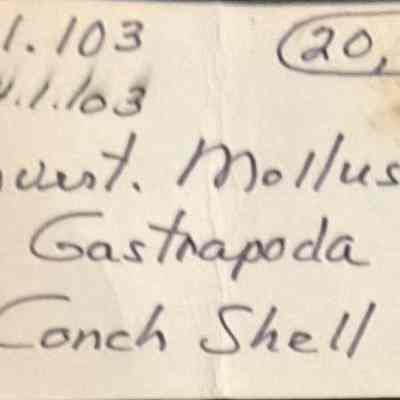 1.103 20,
.1.103
vert. Mollus
Gastrapoda
Conch Shell